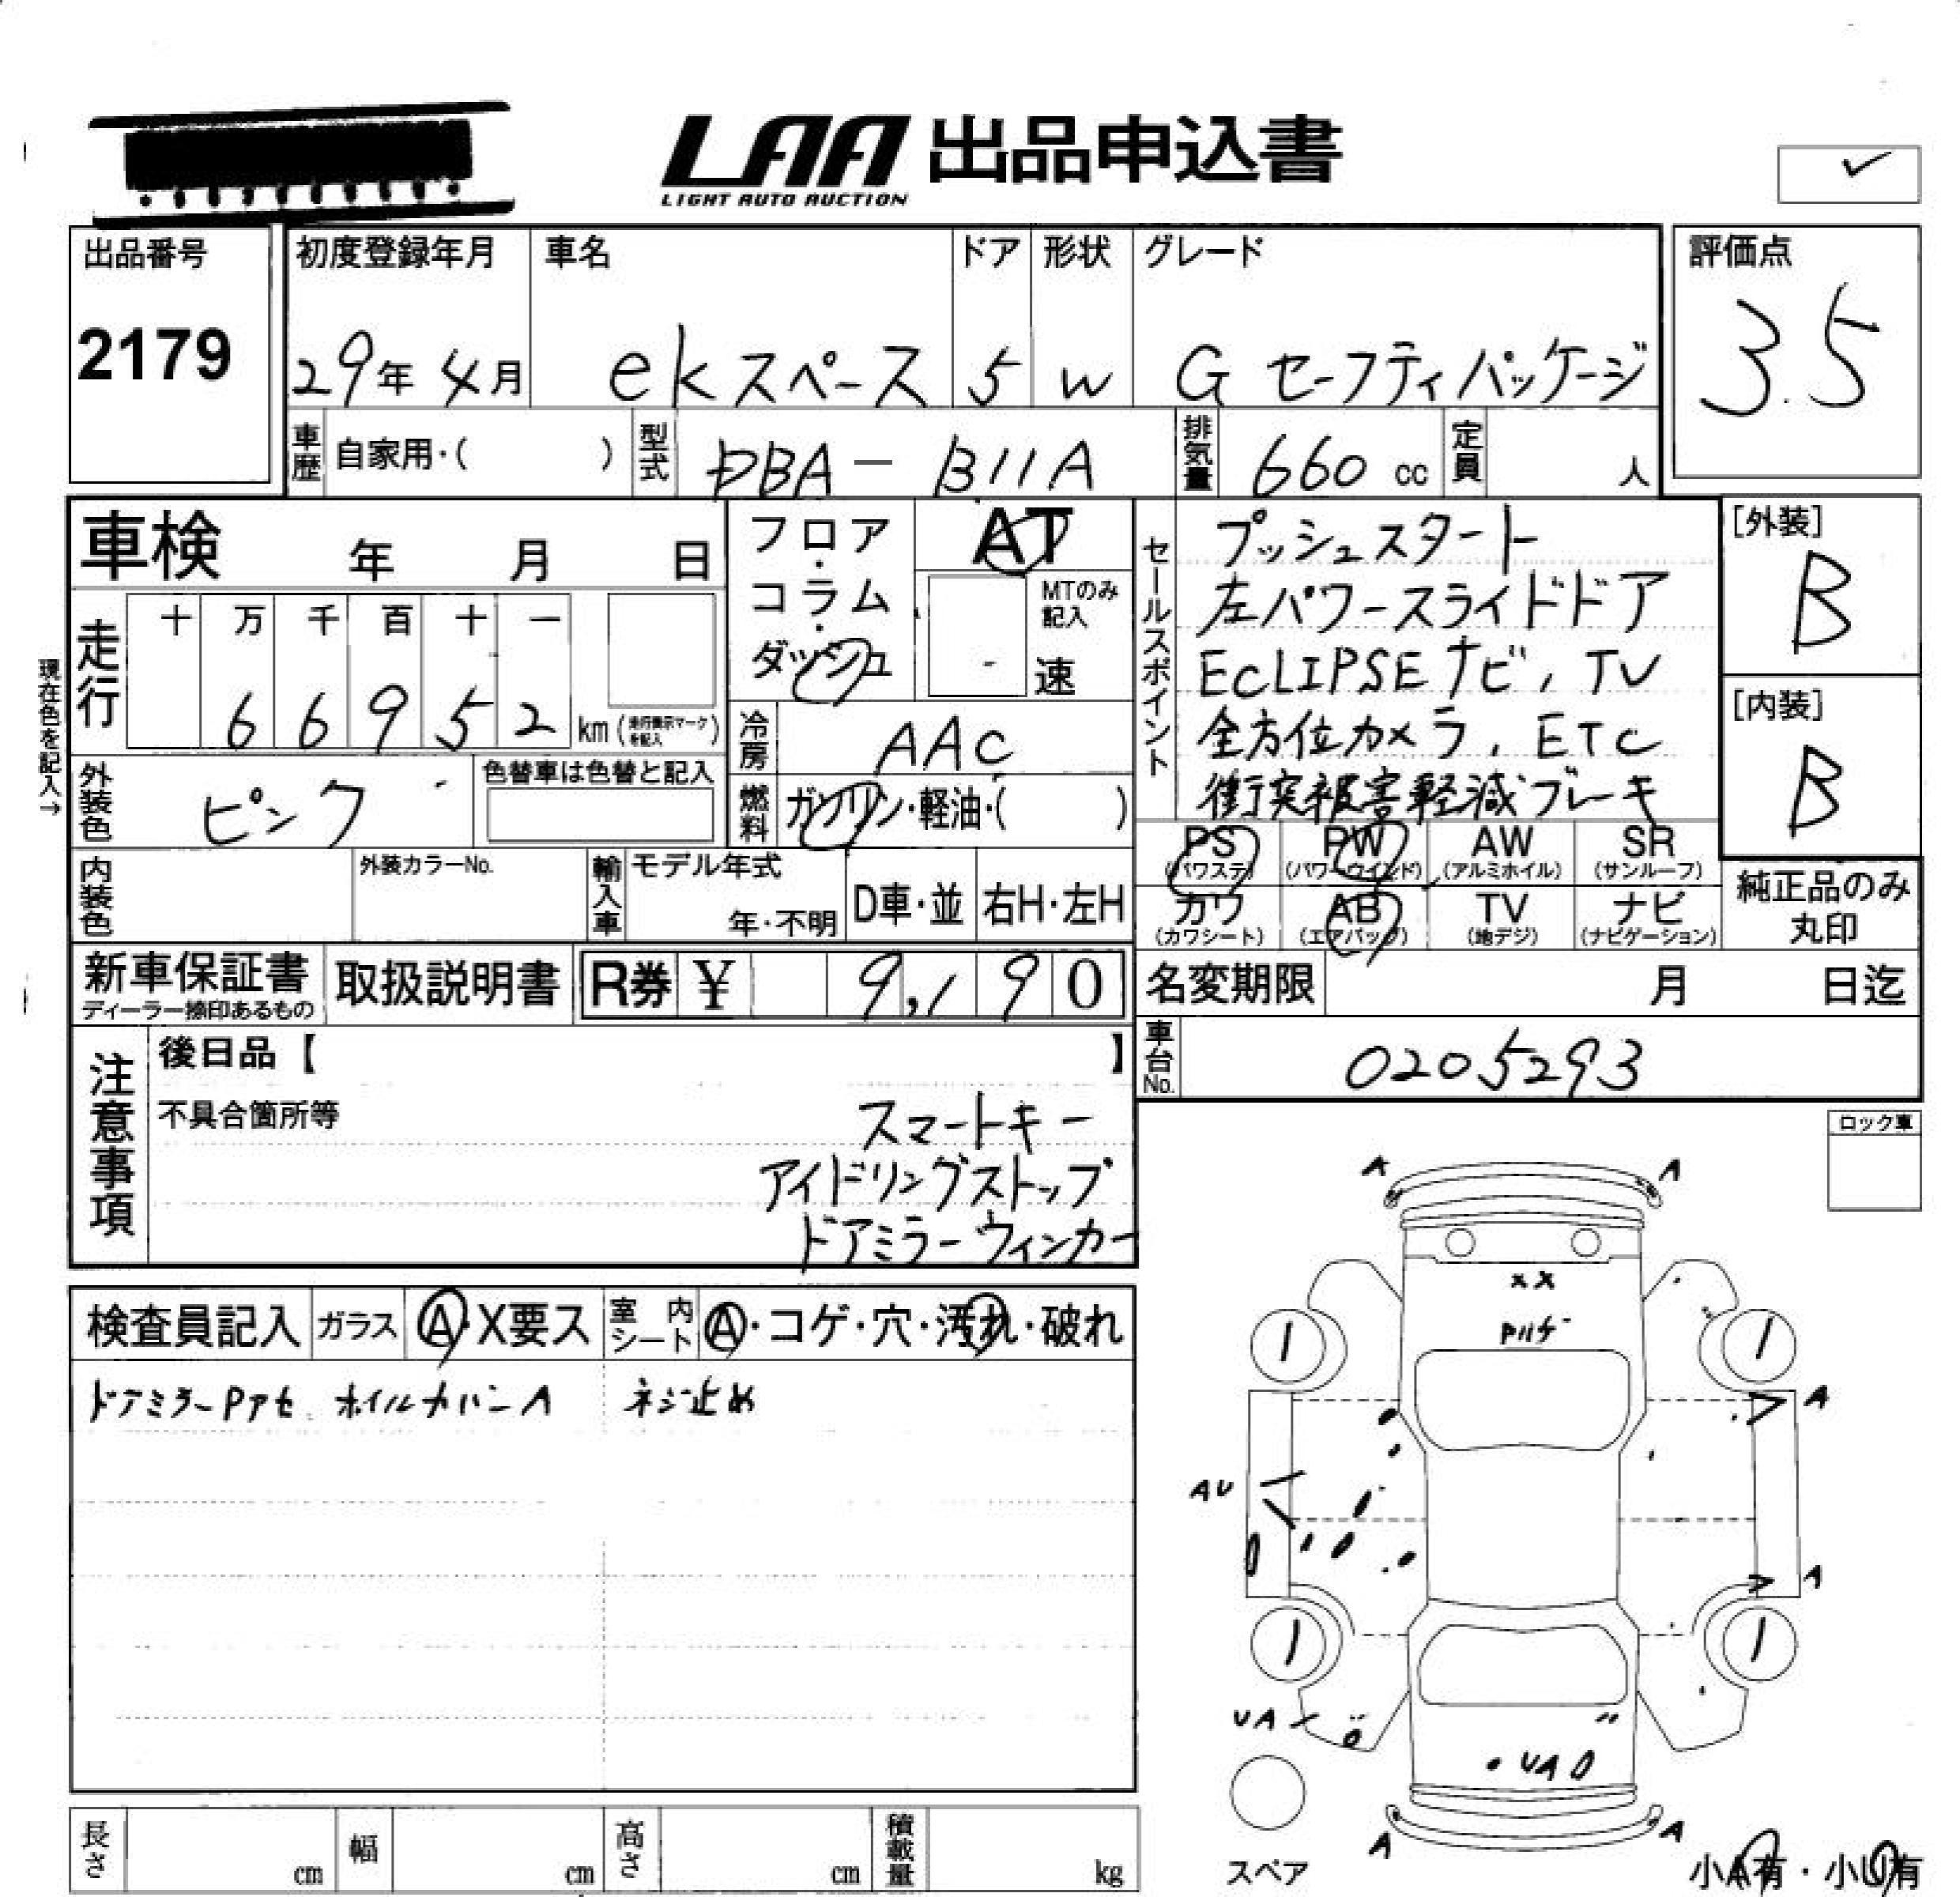 LAA 出品申込書
LIGHT AUTO AUCTION
出品番号
2179
初度登録年月
29年4月
車名
ekスペース
ドア
5
形状
W
グレード
G セーフティパッケージ
評価点
3.5
車歴 自家用・( )
型式 DBA-B11A
排気量 660 cc
定員 人
車検 年 月 日
フロア・コラム・ダッシュ
AT
MTのみ記入
速
セールスポイント
プッシュスタート
左パワースライドドア
ECLIPSEナビ, TV
全方位カメラ, ETC
衝突被害軽減ブレーキ
[外装]
B
[内装]
B
現在色を記入→
走行
十 万 千 百 十 一
6 6 9 5 2 km (走行表示マークを記入)
冷房 AAC
外装色 ピンク
色替車は色替と記入
燃料 ガソリン・軽油・( )
PS (パワステ)
PW (パワーウインド)
AW (アルミホイル)
SR (サンルーフ)
カワ (カワシート)
AB (エアバッグ)
TV (地デジ)
ナビ (ナビゲーション)
純正品のみ丸印
内装色
外装カラーNo.
輸入車
モデル年式
年・不明
D車・並
右H・左H
新車保証書
ディーラー捺印あるもの
取扱説明書
R券 ¥ 9,190
名変期限 月 日迄
車台No. 0205293
注意事項
後日品【 】
不具合箇所等
スマートキー
アイドリングストップ
ドアミラーウィンカー
ロック車
検査員記入 ガラス A・X要ス 室内シート A・コゲ・穴・汚れ・破れ
ドアミラーPアセ ホイルカバーA ネジ止め
A A
XX
Pハゲ
A
AU
A
UA
UA
A A
スペア
小A有・小U有
長さ cm
幅 cm
高さ cm
積載量 kg